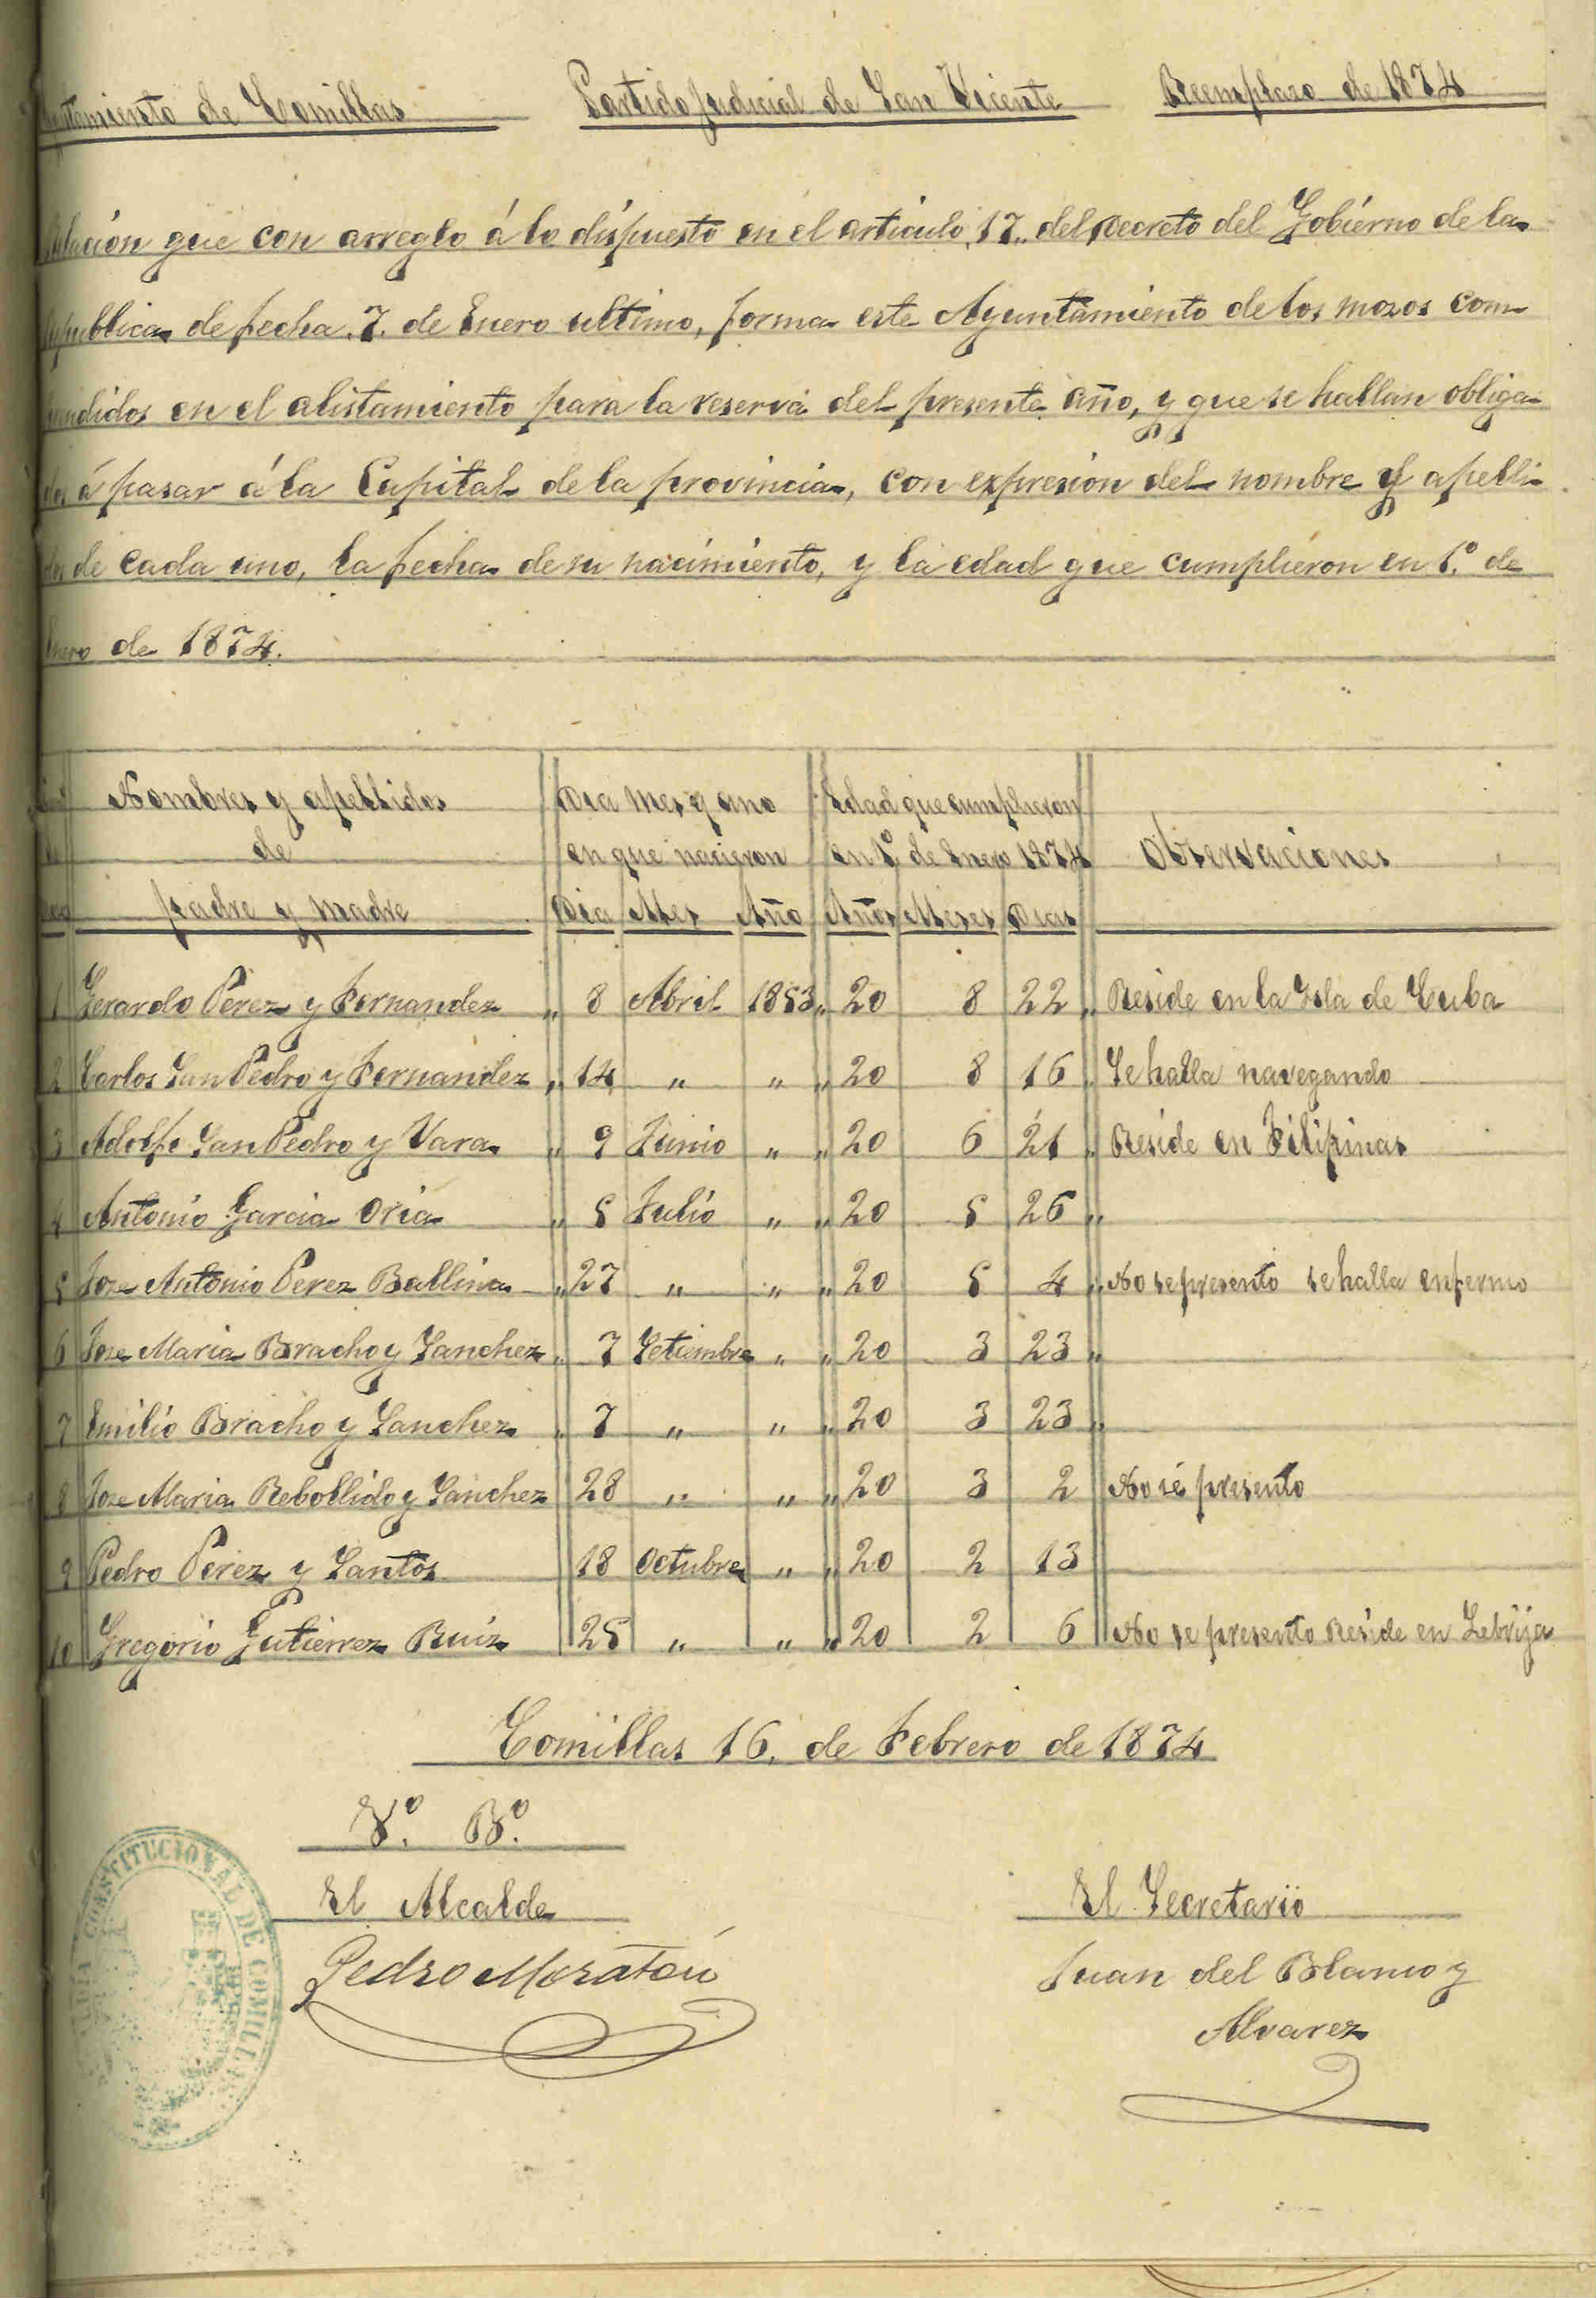 Ayuntamiento de Comillas Partido judicial de San Vicente Reemplazo de 1874
Relación que con arreglo á lo dispuesto en el articulo 17.. del Decreto del Gobierno de la
republica de fecha .7. de Enero ultimo, forma este Ayuntamiento de los mozos com-
prendidos en el alistamiento para la reserva del presente año, y que se hallan obliga-
dos á pasar á la Capital de la provincia, con expresion del nombre y apelli-
dos de cada uno, la fecha de su nacimiento, y la edad que cumplieron en 1.º de
Enero de 1874.
Nombres y apellidos Dia mes y año Edad que cumplieron
de en que nacieron en 1º de Enero 1874 Observaciones
padre y madre Dia Mes Año Años Meses Dias
1 Gerardo Perez y Fernandez „ 8 Abril 1853 „ 20 8 22 „ Reside en la Isla de Cuba
2 Carlos San Pedro y Fernandez „ 14 „ „ „ 20 8 16 „ Se halla navegando
3 Adolfo San Pedro y Vara „ 9 Junio „ „ 20 6 21 „ Reside en Filipinas
4 Antonio Garcia Oria „ 5 Julio „ „ 20 5 26 „
5 Jose Antonio Perez Ballina „ 27 „ „ „ 20 5 4 „ No se presento se halla enfermo
6 Jose Maria Bracho y Sanchez „ 7 Setiembre „ „ 20 3 23 „
7 Emilio Bracho y Sanchez „ 7 „ „ „ 20 3 23 „
8 Jose Maria Rebollido y Sanchez 28 „ „ „ 20 3 2 No se presento
9 Pedro Perez y Santos 18 Octubre „ „ 20 2 13
10 Gregorio Gutierrez Ruiz 25 „ „ „ 20 2 6 No se presento Reside en Lebrija
Comillas 16. de Febrero de 1874
Vº. Bº.
El Alcalde
Pedro Moratou
El Secretario
Juan del Blanco y
Alvarez
CONSTITUCIONAL DE COMILLAS